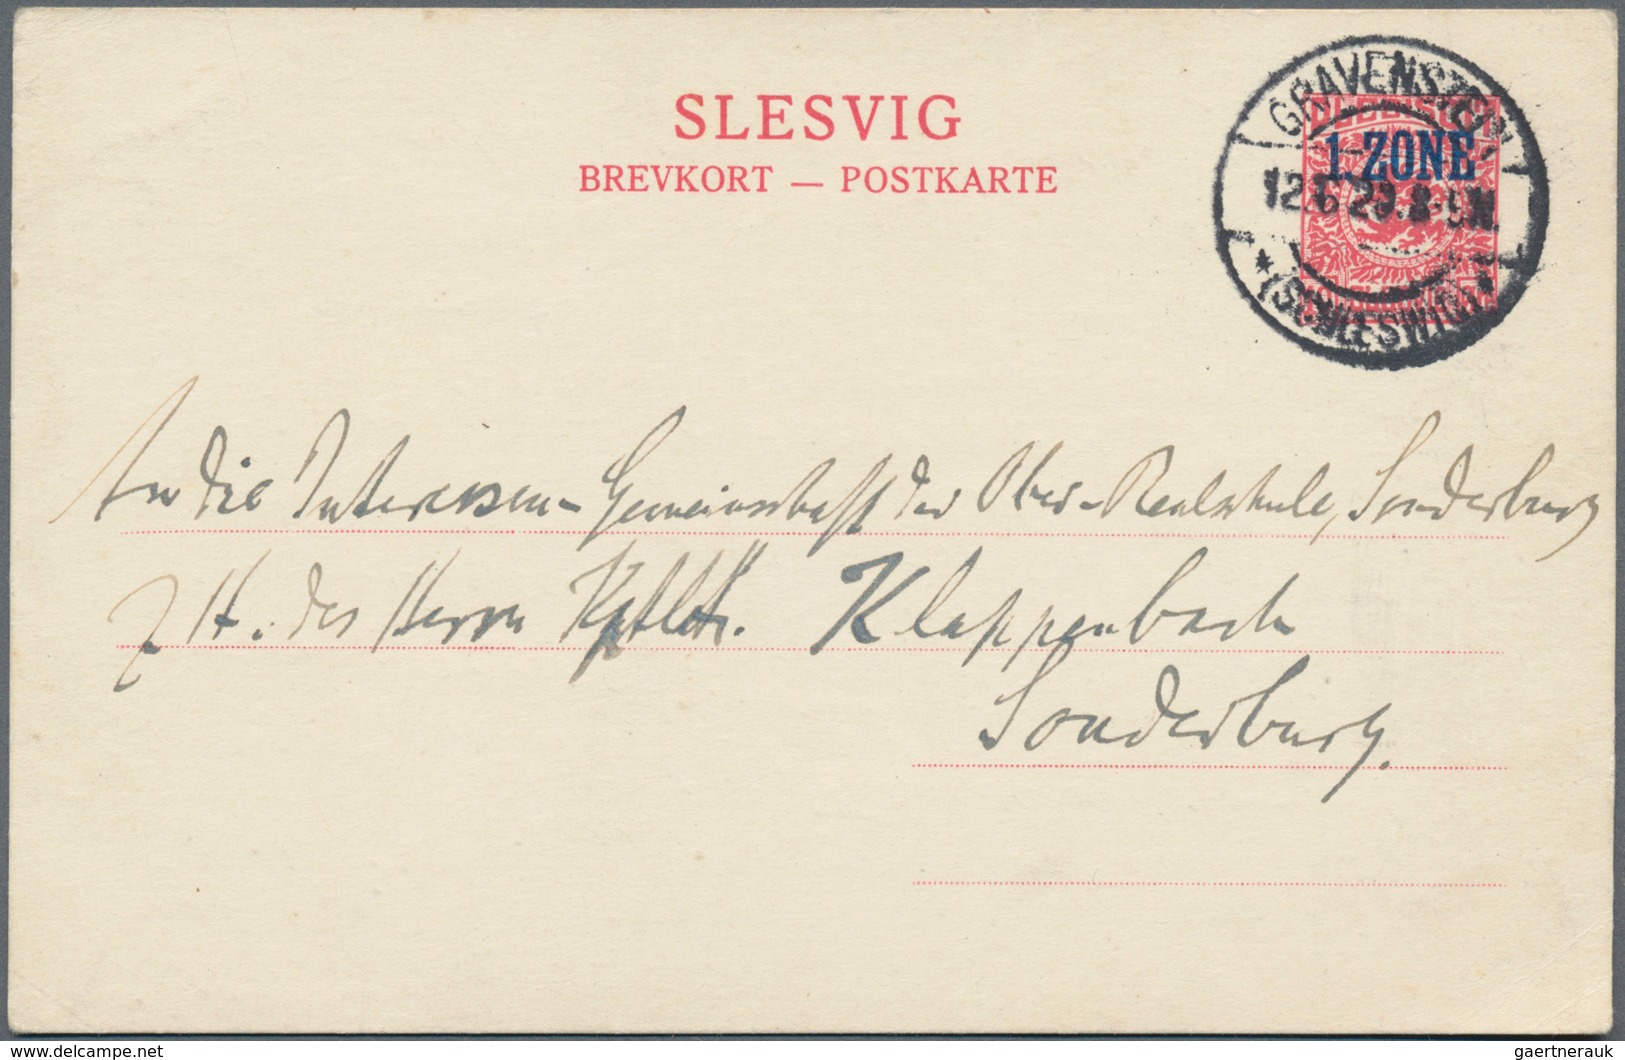 SLESVIG
BREVKORT — POSTKARTE
GRAVENSTEIN
1.ZONE
12.6 20.8-9N
* (SCHLESWIG) *
An die Interessen-Gemeinschaft der Ober-Realschule, Sonderburg
z. H. des Herrn Kptlt. Klappenbach
Sonderburg.
www.delcampe.net
gaertnerauk